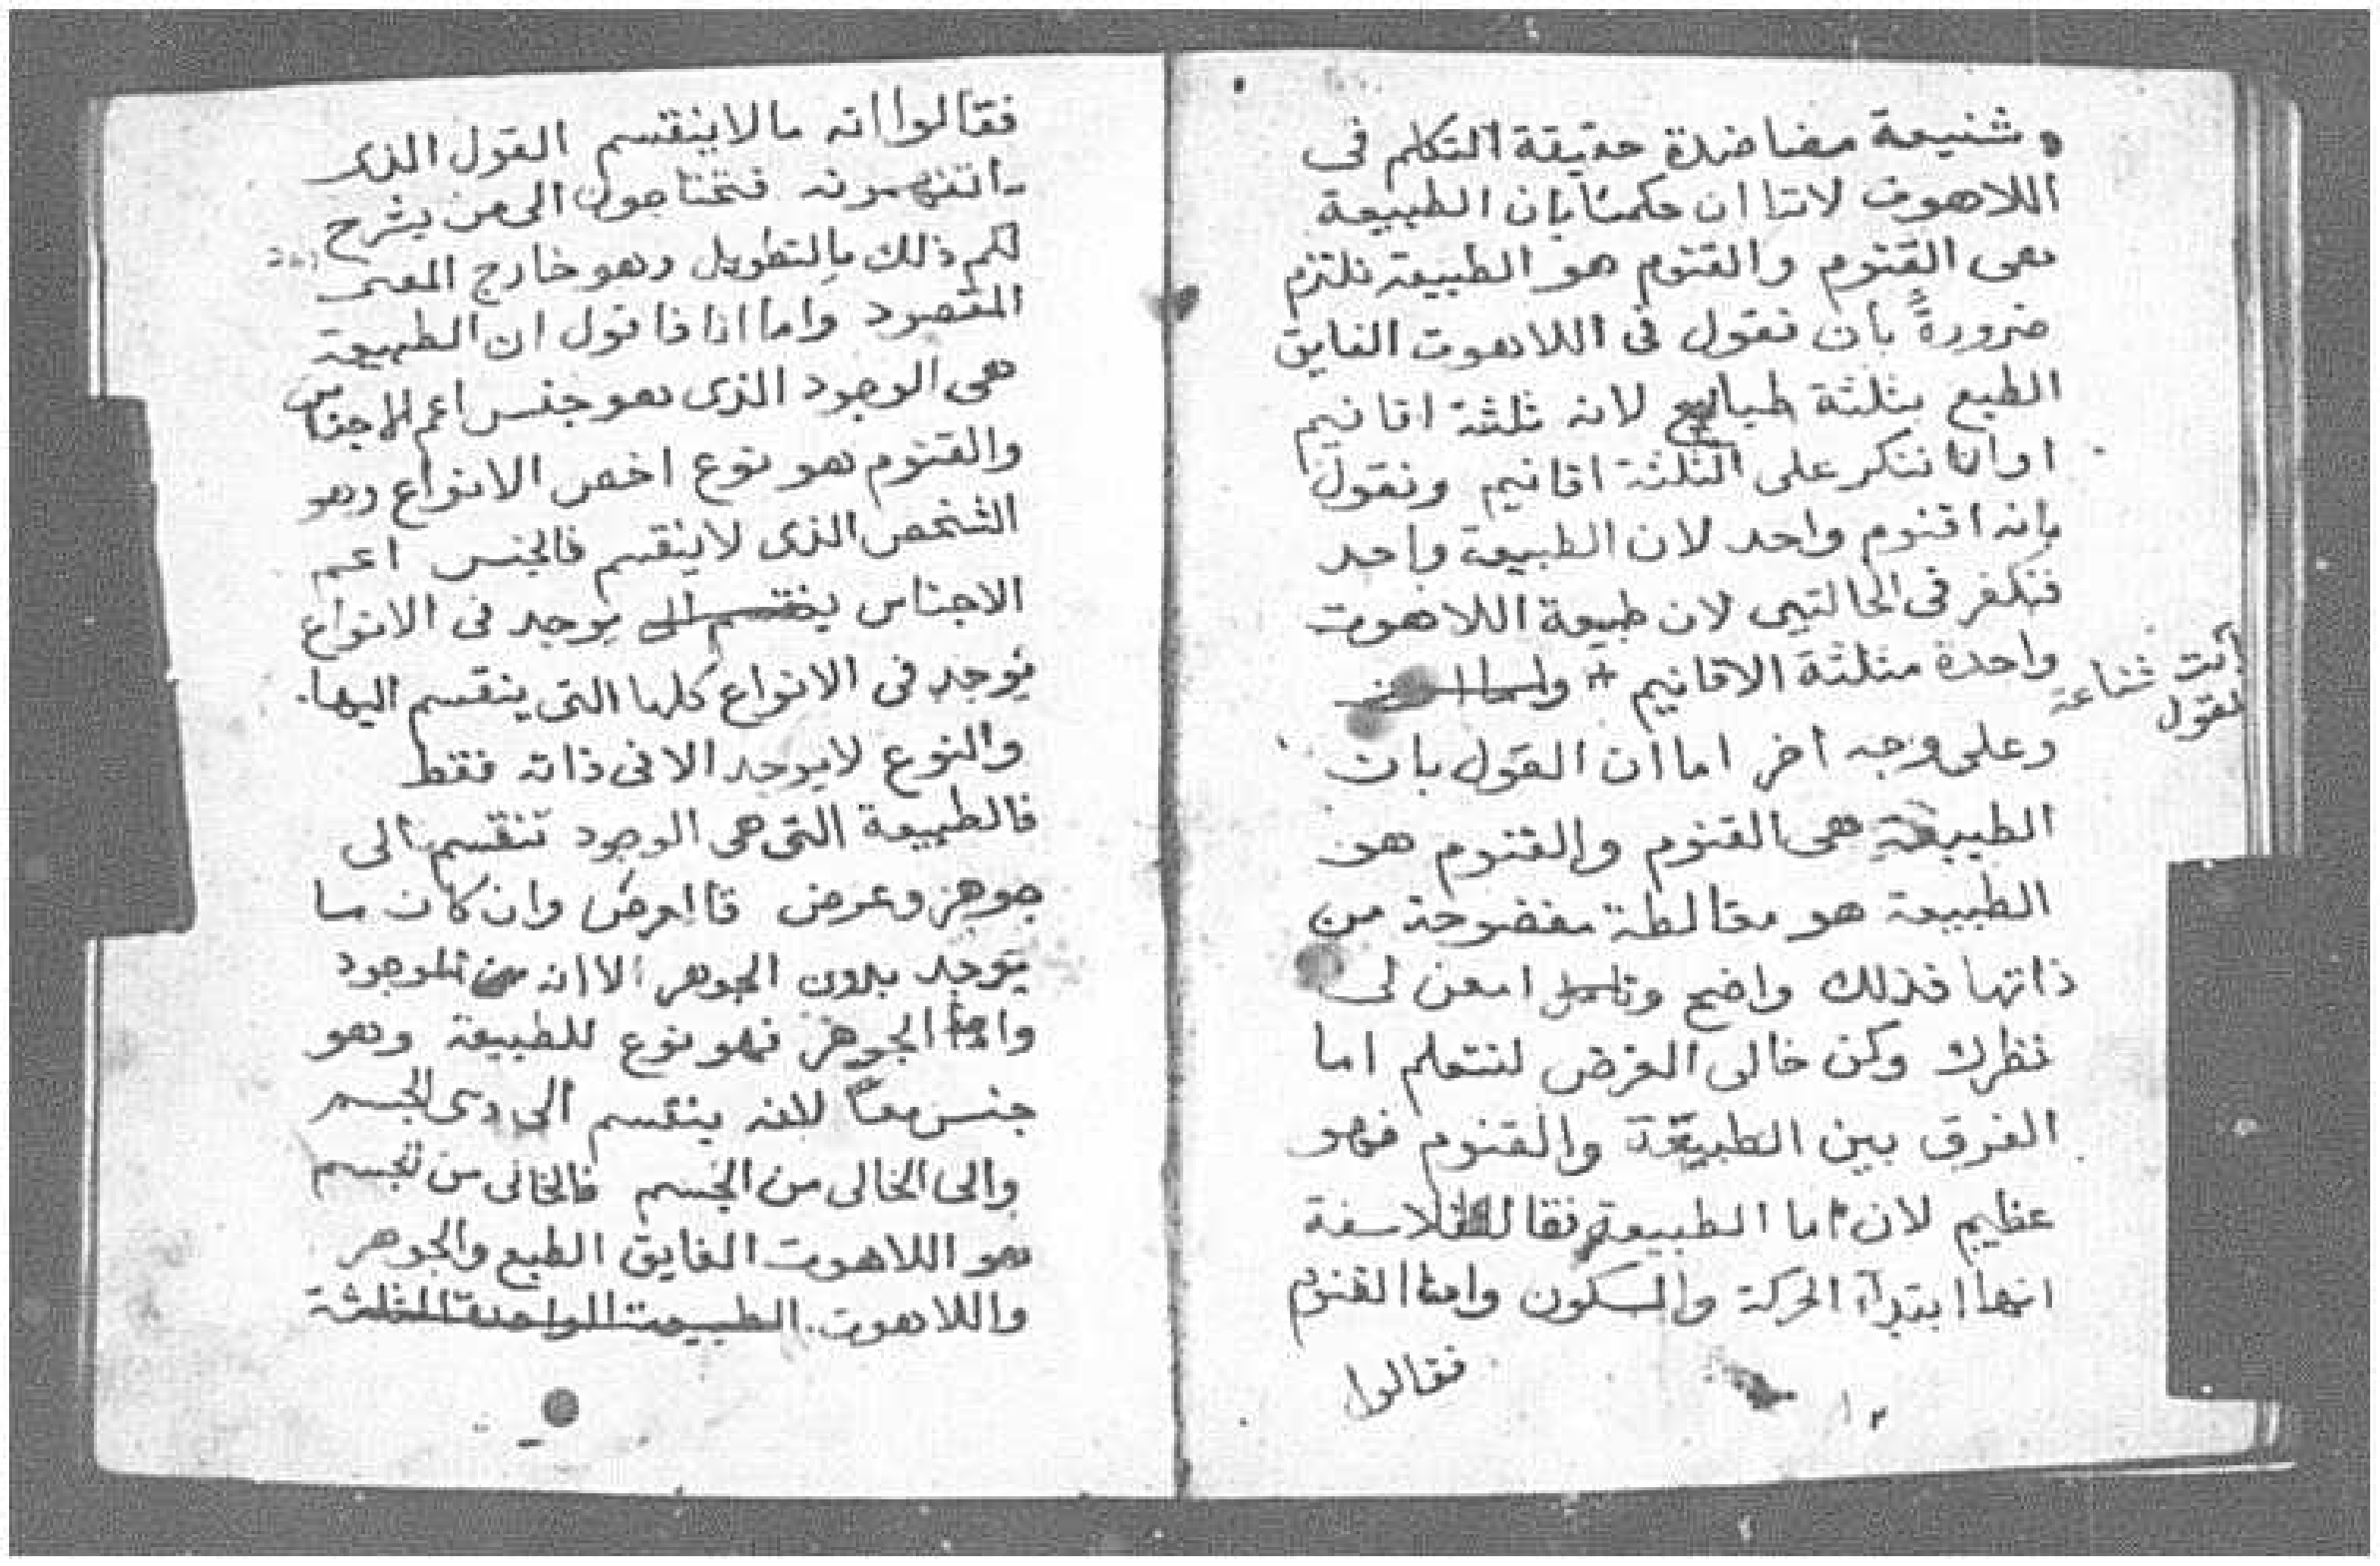 شنيعة مضاضدة حقيقة التكلم فى
اللاهوت لاننا ان حكمنا بان الطبيعة
هى القنوم والقنوم هو الطبيعة نلتزم
ضرورةً بان نقول فى اللاهوت الفايق
الطبع بثلثة طبايع لانه ثلثة اقانيم
او اننا ننكر على الثلثة اقانيم ونقول
بانه اقنوم واحد لان الطبيعة واحد
فنكفر فى الحالتين لان طبيعة اللاهوت
واحدة مثلثة الاقانيم *
شناعة
لقول
وعلى وجه اخر اما ان القول بان
الطبيعة هى القنوم والقنوم هو
الطبيعة هو مغالطة مفضوحة من
ذاتها فذلك واضح امعن لى
نظرك وكن خالى الغرض لنتعلم اما
الفرق بين الطبيعة والقنوم فهو
عظيم لان اما الطبيعة فقال الفلاسفة
انها ابتدآ الحركة والسكون واما القنوم
فقالوا
فقالوا انه مالا ينقسم القول الذى
فتحتاجون الى من يشرح
لكم ذلك بالتطويل وهو خارج المعنى
المقصود واما انا فاقول ان الطبيعة
هى الوجود الذى هو جنس اعم الاجناس
والقنوم هو نوع اخص الانواع وهو
الشخص الذى لا ينقسم فالجنس اعم
الاجناس ينقسم الى يوجد فى الانواع
يوجد فى الانواع كلها التى ينقسم اليها
والنوع لا يوجد الا فى ذاته فقط
فالطبيعة التى هى الوجود تنقسم الى
جوهر وعرض فالعرض وان كان ما
يوجد بدون الجوهر الا انه من الموجود
واما الجوهر فهو نوع للطبيعة وهو
جنس معًا لانه ينقسم الى ذى الجسم
والى الخالى من الجسم فالخالى من تجسم
هو اللاهوت الفايق الطبع والجوهر
واللاهوت. الطبيعة الواحدة المثلثة